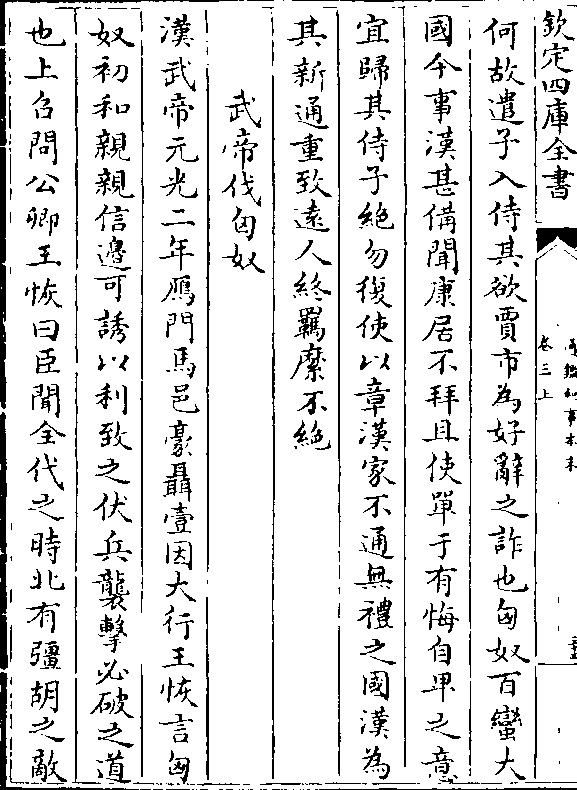 欽定四庫全書
通鑑紀事本末
卷三上
何故遣子入侍其欲賈市為好辭之詐也匈奴百蠻大
國今事漢甚備聞康居不拜且使單于有悔自卑之意
宜歸其侍子絕勿復使以章漢家不通無禮之國漢為
其新通重致遠人終羈縻不絕
武帝伐匈奴
漢武帝元光二年鴈門馬邑豪聶壹因大行王恢言匈
奴初和親親信邊可誘以利致之伏兵襲擊必破之道
也上召問公卿王恢曰臣聞全代之時北有彊胡之敵